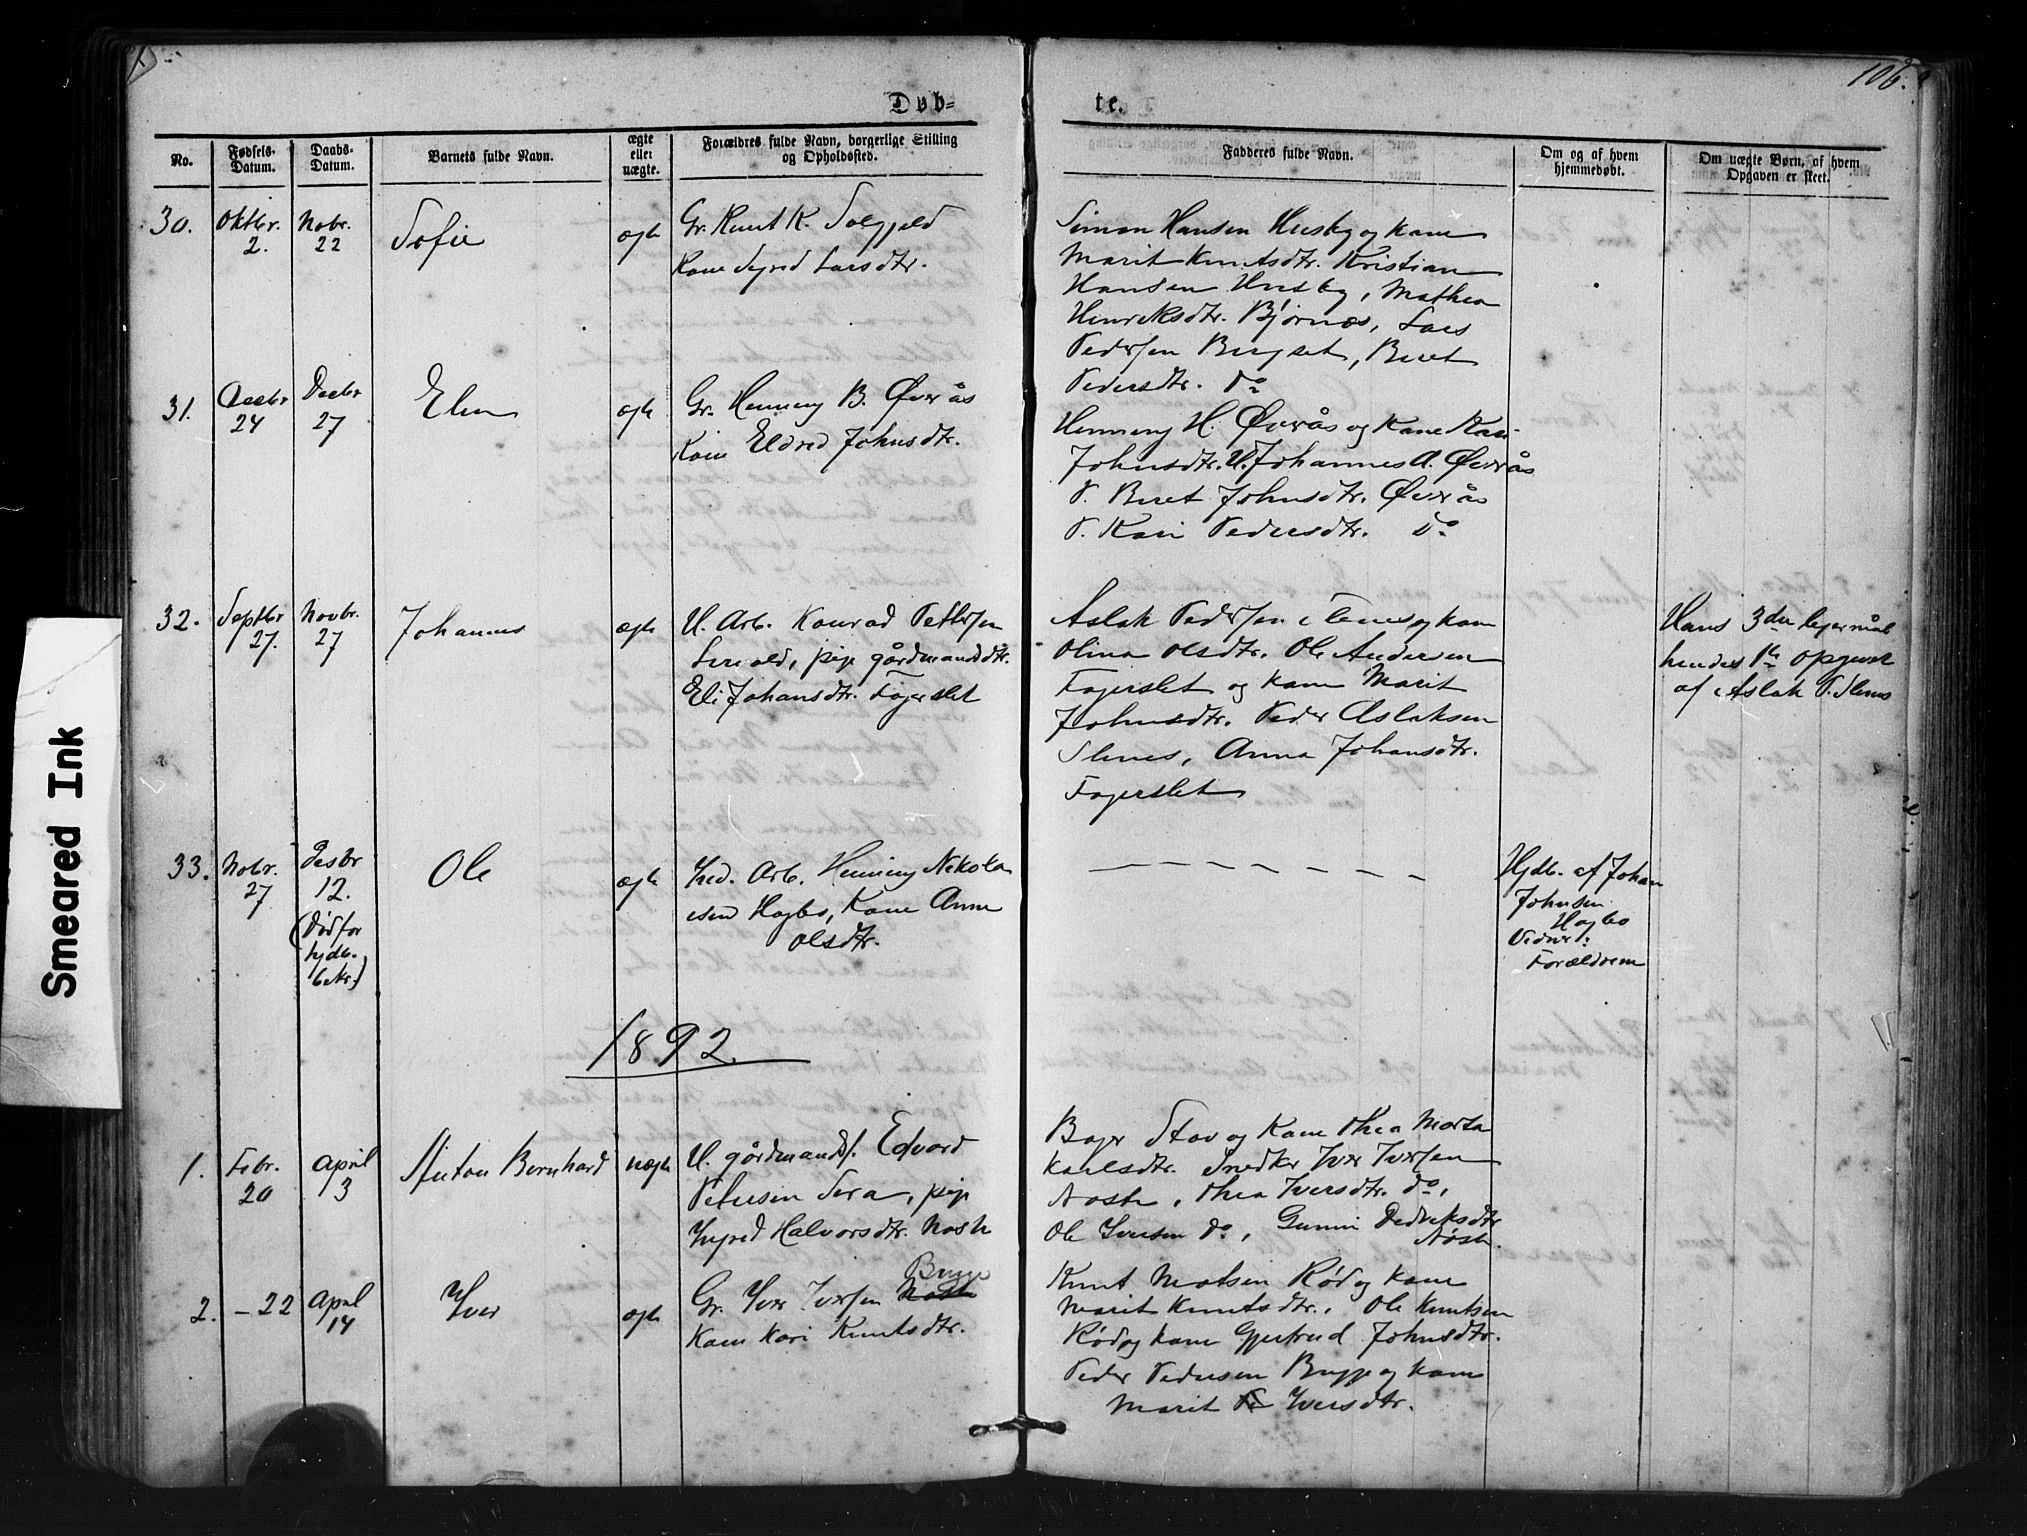 106.
Døb-
te.
No.
Fødsels-
Datum.
Daabs-
Datum.
Barnets fulde Navn.
ægte
eller
uægte.
Forældres fulde Navn, borgerlige Stilling
og Opholdssted.
Fadderes fulde Navn.
Om og af hvem
hjemmedøbt.
Om uægte Børn, af hvem
Opgaven er skeet.
30.
Oktbr.
2.
Nobr.
22
Sofie
ægte
Gr. Knut K. Solgjeld
Kone Sigrid Larsdtr.
Simon Hansen Husby og kone
Marit Knutsdtr. Kristian
Hansen Husby, Mathea
Henriksdtr. Bjørnæs, Lars
Pedersen Bergset, Beret
Pedersdtr. do
31.
Decbr
24
Decbr
27
Elen
ægte
Gr. Henning B. Øverås
Kone Eldrid Johnsdtr.
Henning H. Øverås og Kone Kari
Johnsdtr. U. Johannes A. Øverås
P. Beret Johnsdtr. Øverås
P. Kari Pedersdtr. do
32.
Septbr
27.
Novbr.
27
Johannes
U. Arb. Konrad Pettersen
pige gårdmandsdtr.
Eli Johansdtr. Fagerslet
Aslak Pedersen og kone
Olina Olsdtr. Ole Andersen
Fagerslet og kone Marit
Johnsdtr. Peder Aslaksen
Slenes, Anna Johansdtr.
Fagerslet
Hans 3die leiermål
hendes 1te opgivet
af Aslak P. Slenes
33.
Nobr.
27
Desbr
12.
(Død før
hjdb.
bekr.)
Ole
ægte
Ind. Arb. Henning Nikola
isen Hagbø, Kone Anne
Olsdtr.
— — — — — — —
Hjdb. af Johan
Johnsen
Hagbø
Vidner:
Forældrene
1892.
1.
Febr.
20
April
3
Anton Bernhard
uægte
U. gårdmands. Edvard
Petersen Sira, pige
Ingrid Halvorsdtr. Nøste
Bajer Stav og Kone Thea Marta
Karlsdtr. Snedker Iver Iversen
Nøste, Thea Iversdtr. do,
Ole Iversen do, Gunni Dedriksdtr
Nøste.
2.
– 22
April
14
Iver
ægte
Bugge
Gr. Iver Iversen Nøste
Kone Kari Knutsdtr.
Knut Matsen Rød og kone
Marit Knutsdtr., Ole Knutsen
Rød og kone Gjertrud Johnsdtr.
Peder Pedersen Bugge og kone
Marit Iversdtr.
Smeared Ink